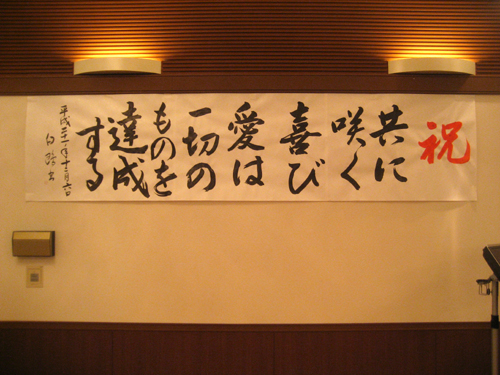 祝
共に
咲く
喜び
愛は
一切の
ものを
達成
する
平成二十一年十二月六日